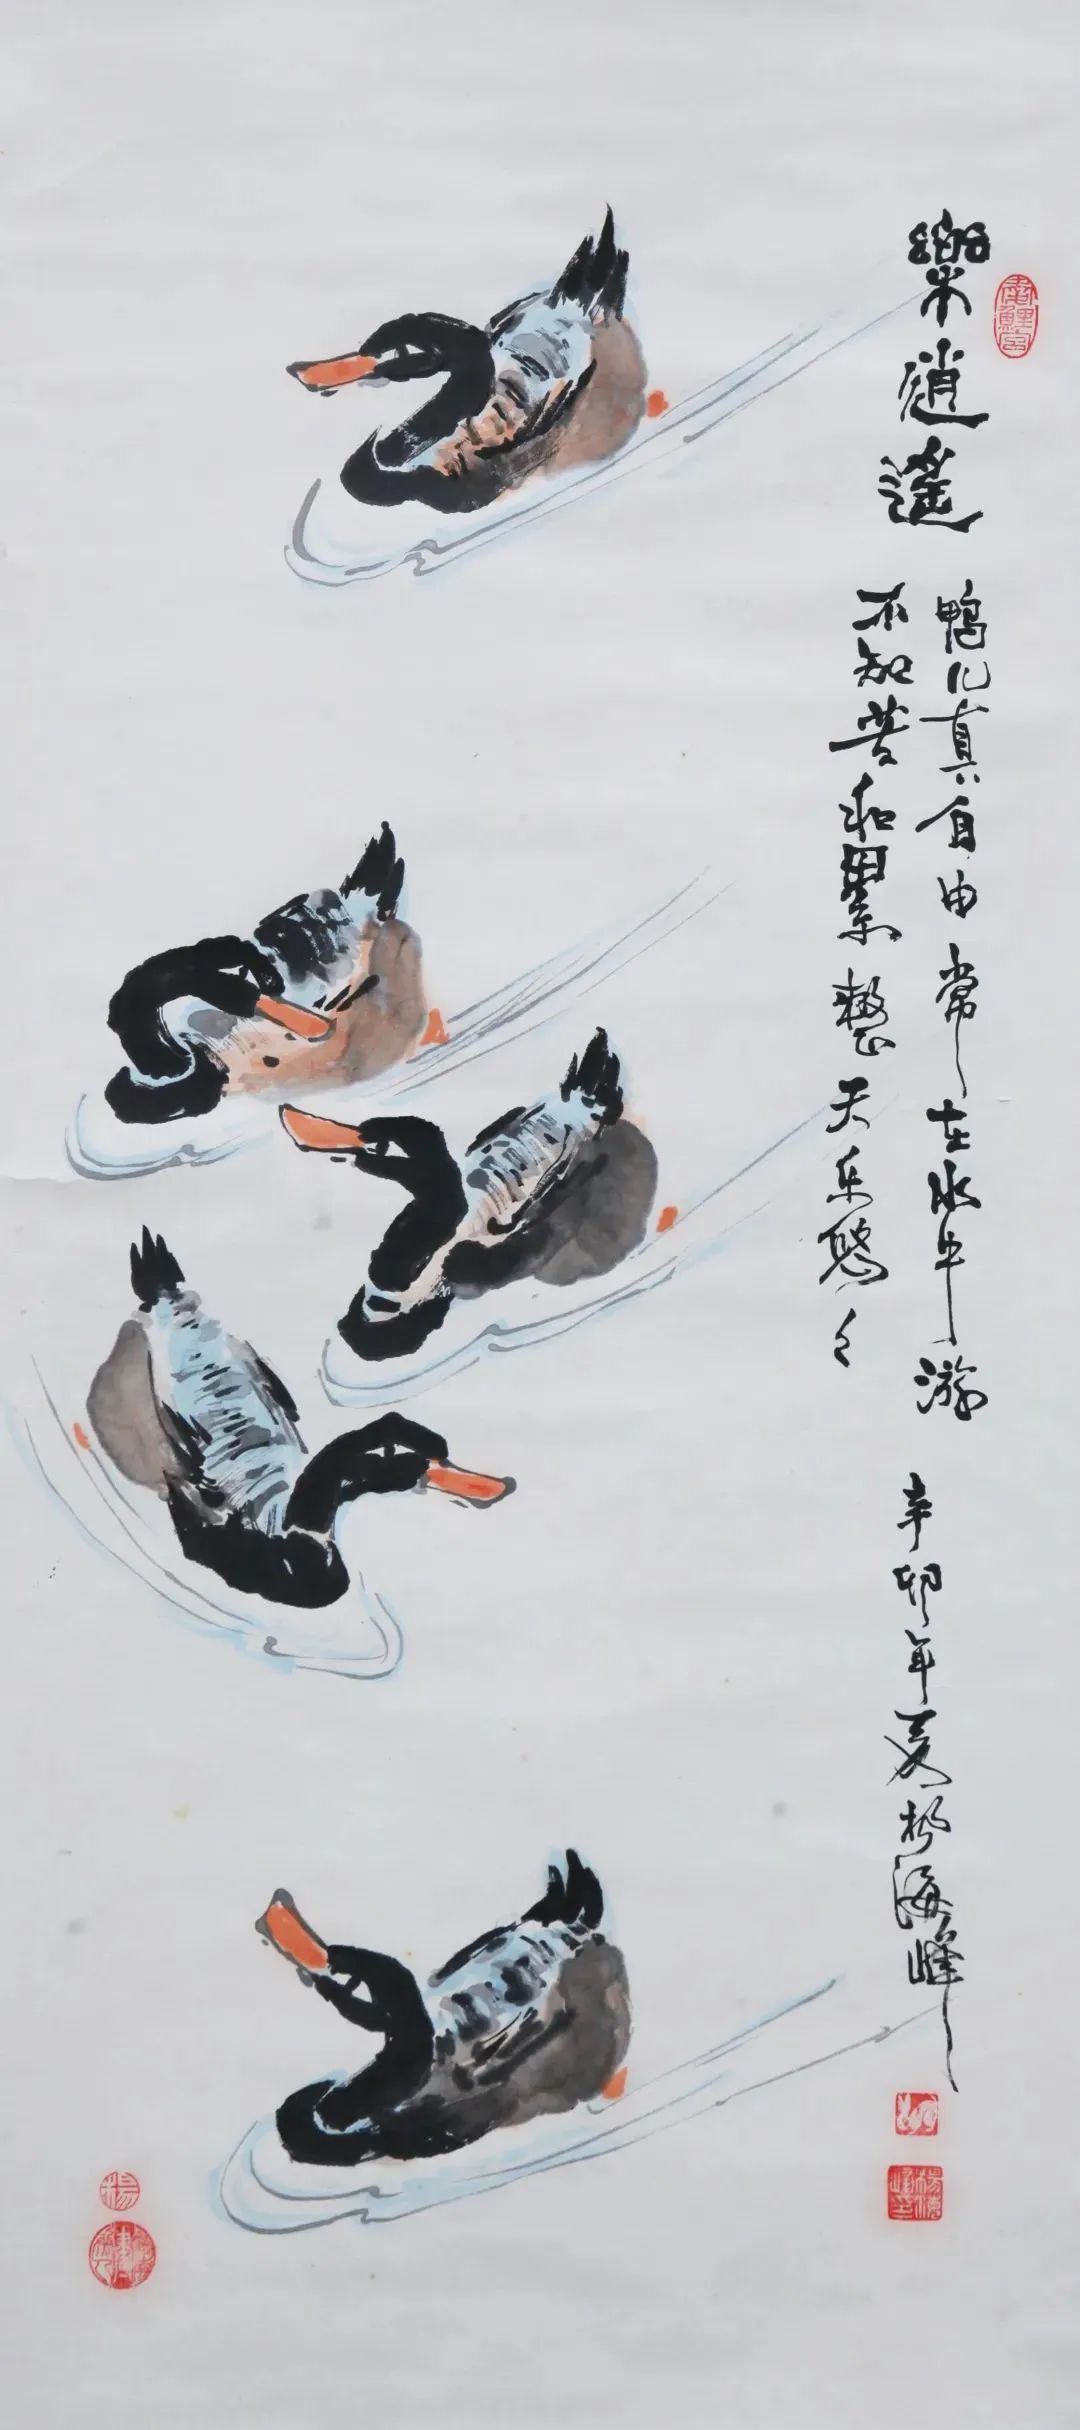 樂逍遥
鴨儿真自由常在水中游
不知苦和累整天乐悠々
辛卯年夏杨海峰
杨
杨海峰印